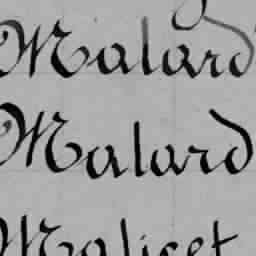 Malard
Malard
Malicet